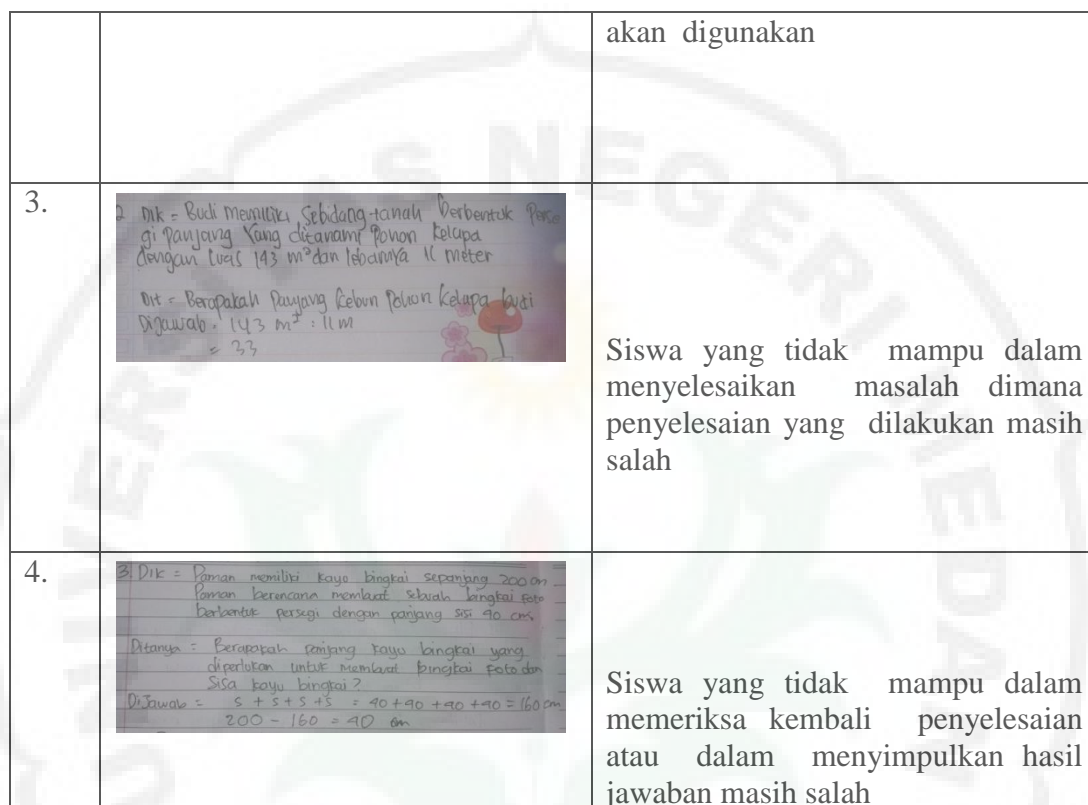 akan digunakan
3.
2 Dik = Budi Memiliki Sebidang tanah berbentuk Perse
gi Panjang Yang ditanami Pohon Kelapa
dengan luas 143 m² dan lebarnya 11 meter
Dit = Berapakah Panjang Kebun Pohon Kelapa budi
Dijawab = 143 m² : 11 m
= 33
Siswa yang tidak mampu dalam
menyelesaikan masalah dimana
penyelesaian yang dilakukan masih
salah
4.
3. Dik = Paman memiliki kayu bingkai sepanjang 200 cm
Paman berencana membuat sebuah bingkai foto
berbentuk persegi dengan panjang sisi 40 cm
Ditanya = Berapakah panjang kayu bingkai yang
diperlukan untuk membuat bingkai foto dan
Sisa kayu bingkai?
DiJawab = s + s + s + s = 40 + 40 + 40 + 40 = 160 cm
200 - 160 = 40 cm
Siswa yang tidak mampu dalam
memeriksa kembali penyelesaian
atau dalam menyimpulkan hasil
jawaban masih salah
UNIVERSITAS NEGERI MEDAN